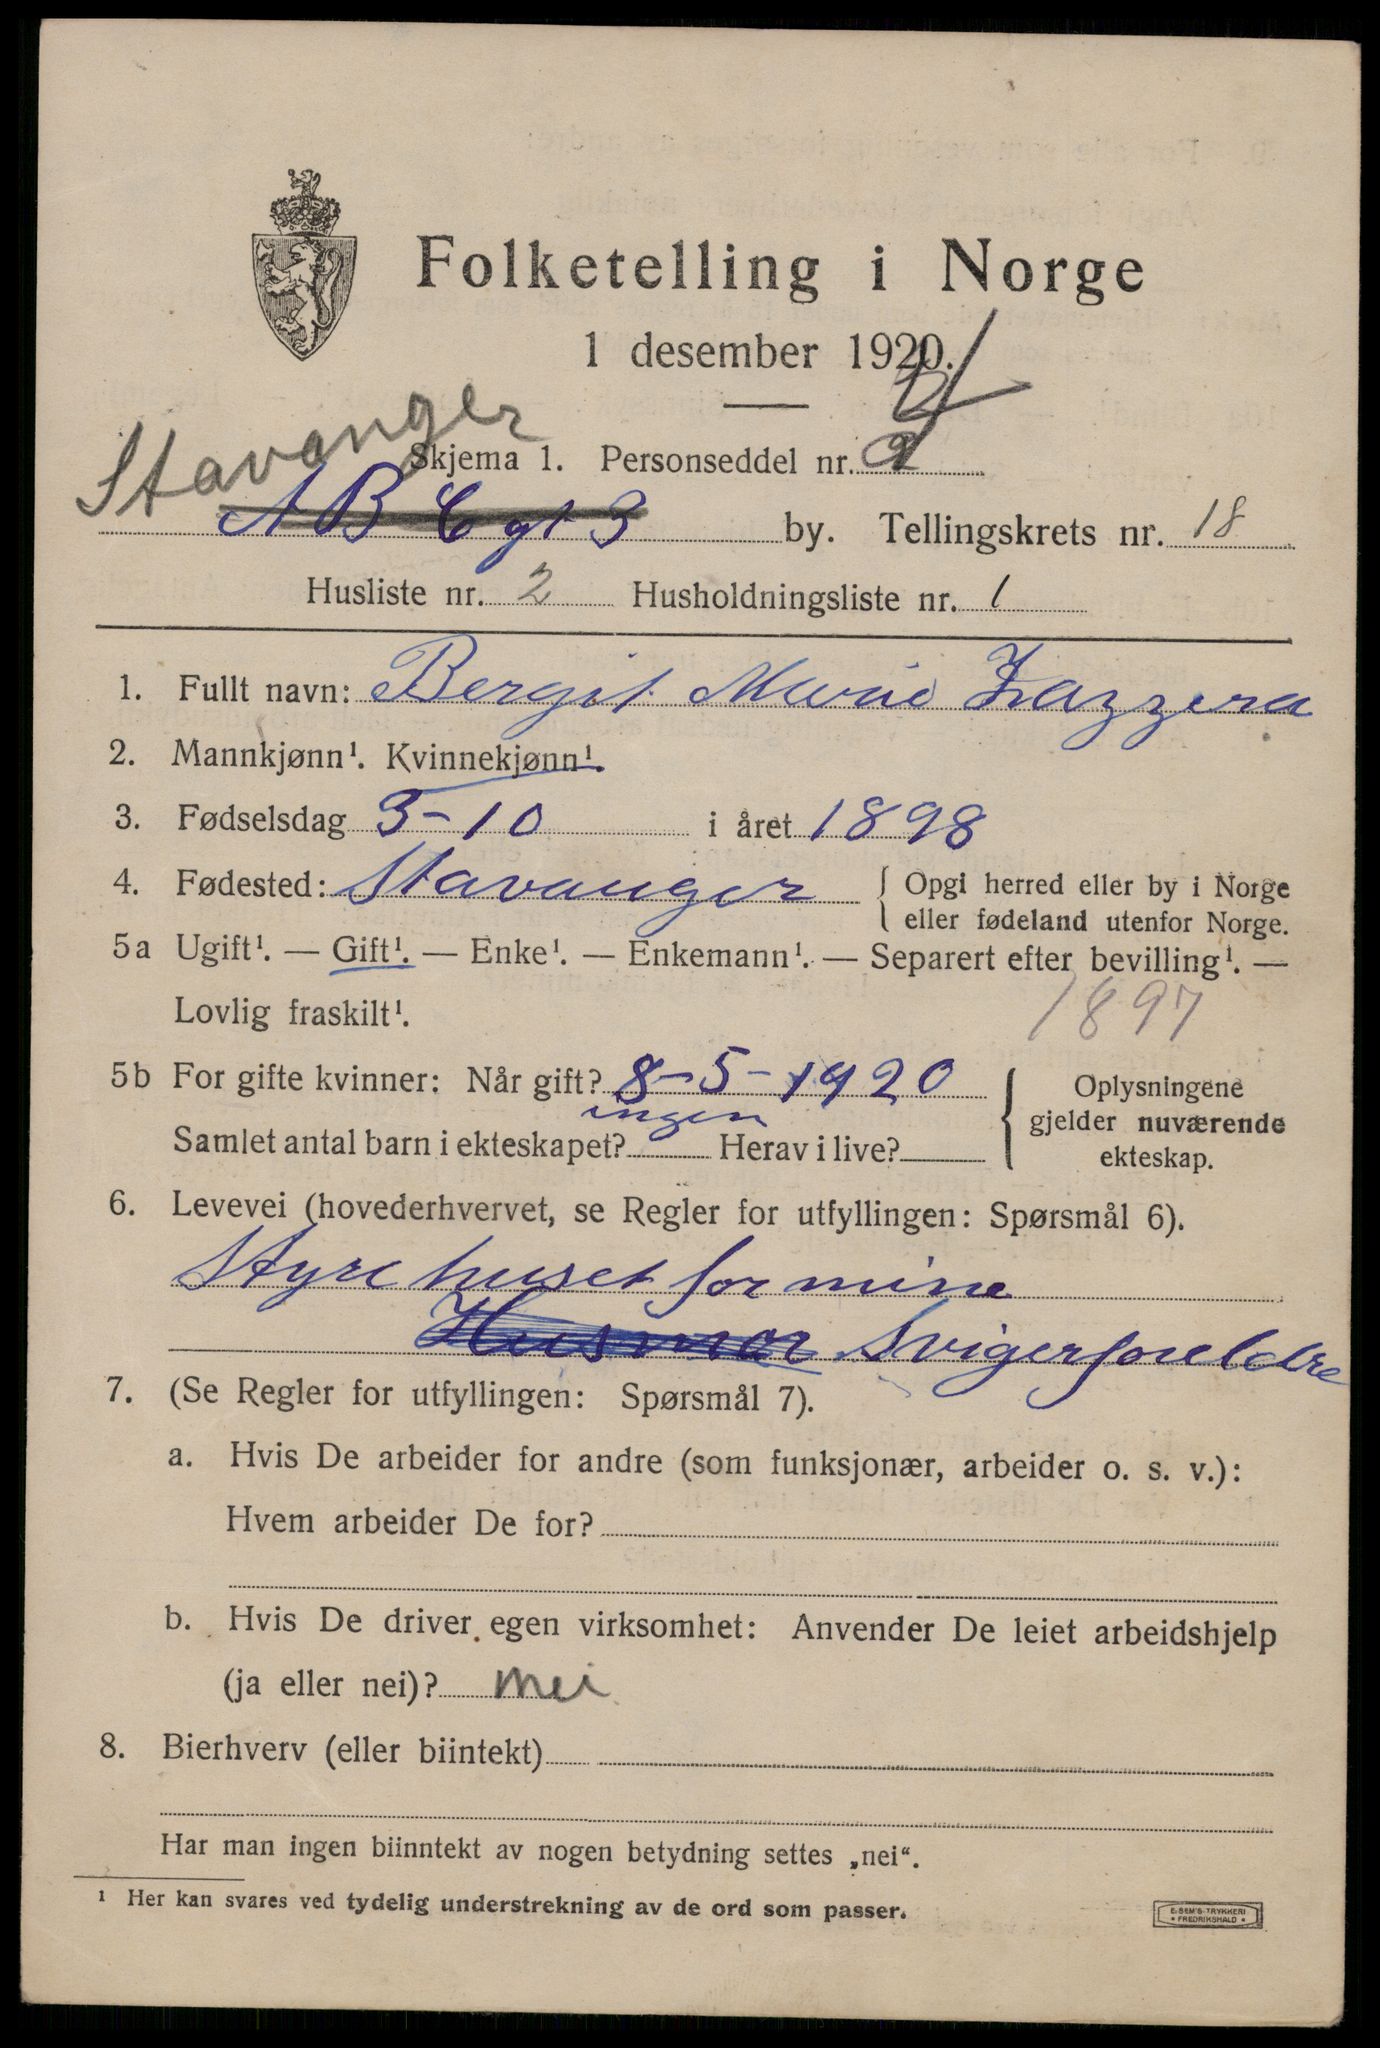 Folketelling i Norge
1 desember 1920.
Stavanger
Skjema 1. Personseddel nr. 2 4
A B C gt 3 by. Tellingskrets nr. 18
Husliste nr. 2 Husholdningsliste nr. 1
1. Fullt navn: Bergit Marie Zazzera
2. Mannkjønn¹. Kvinnekjønn¹.
3. Fødselsdag 3-10 i året 1898
4. Fødested: Stavanger { Opgi herred eller by i Norge
eller fødeland utenfor Norge.
5a Ugift¹. — Gift¹. — Enke¹. — Enkemann¹. — Separert efter bevilling¹. —
Lovlig fraskilt¹. 1897
5b For gifte kvinner: Når gift? 8-5-1920
Samlet antal barn i ekteskapet? ingen Herav i live?
{ Oplysningene
gjelder nuværende
ekteskap.
6. Levevei (hovederhvervet, se Regler for utfyllingen: Spørsmål 6).
Styre huset for mine
Husmor Svigerforeldre
7. (Se Regler for utfyllingen: Spørsmål 7).
a. Hvis De arbeider for andre (som funksjonær, arbeider o. s. v.):
Hvem arbeider De for?
b. Hvis De driver egen virksomhet: Anvender De leiet arbeidshjelp
(ja eller nei)? nei
8. Bierhverv (eller biintekt)
Har man ingen biinntekt av nogen betydning settes „nei“.
¹ Her kan svares ved tydelig understrekning av de ord som passer.
E. SEM'S TRYKKERI
* FREDRIKSHALD *